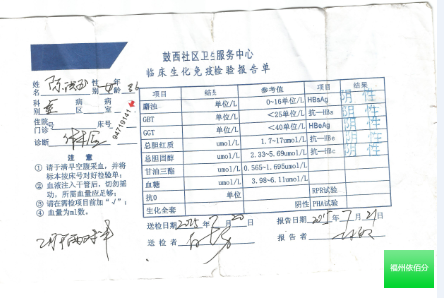 鼓西社区卫生服务中心
临床生化免疫检验报告单
姓名 性 年
科别 病区 室
住院 门诊 号 床号
诊断
注意
① 请于清早空腹采血,并将标本按床号对好检验单;
② 血液注入干管后,切勿摇动,所需血量应足够;
③ 请在需检项目前加“√”;
④ 血量为ml数。
94710141
项目 结果 参考值 项目 结果
麝浊 单位/L 0~16单位/L HBsAg 阴性
GBT 单位/L <25单位/L 抗—HBs
GGT 单位/L <40单位/L HBeAg 阴性
总胆红质 umol/L 1.7-17umol/L 抗—HBe
总胆固醇 umol/L 2.33~5.69umol/L 抗—HBc 阴性
甘油三酯 umol/L 0.565-1.695umol/L
血糖 umol/L 3.98-6.11umol/L
抗0 单位 RPR试验
生化全套 阴性 PHA试验
送检日期 2025年7月20日 报告日期 2025年7月21日
送检者 报告者
福州依佰分